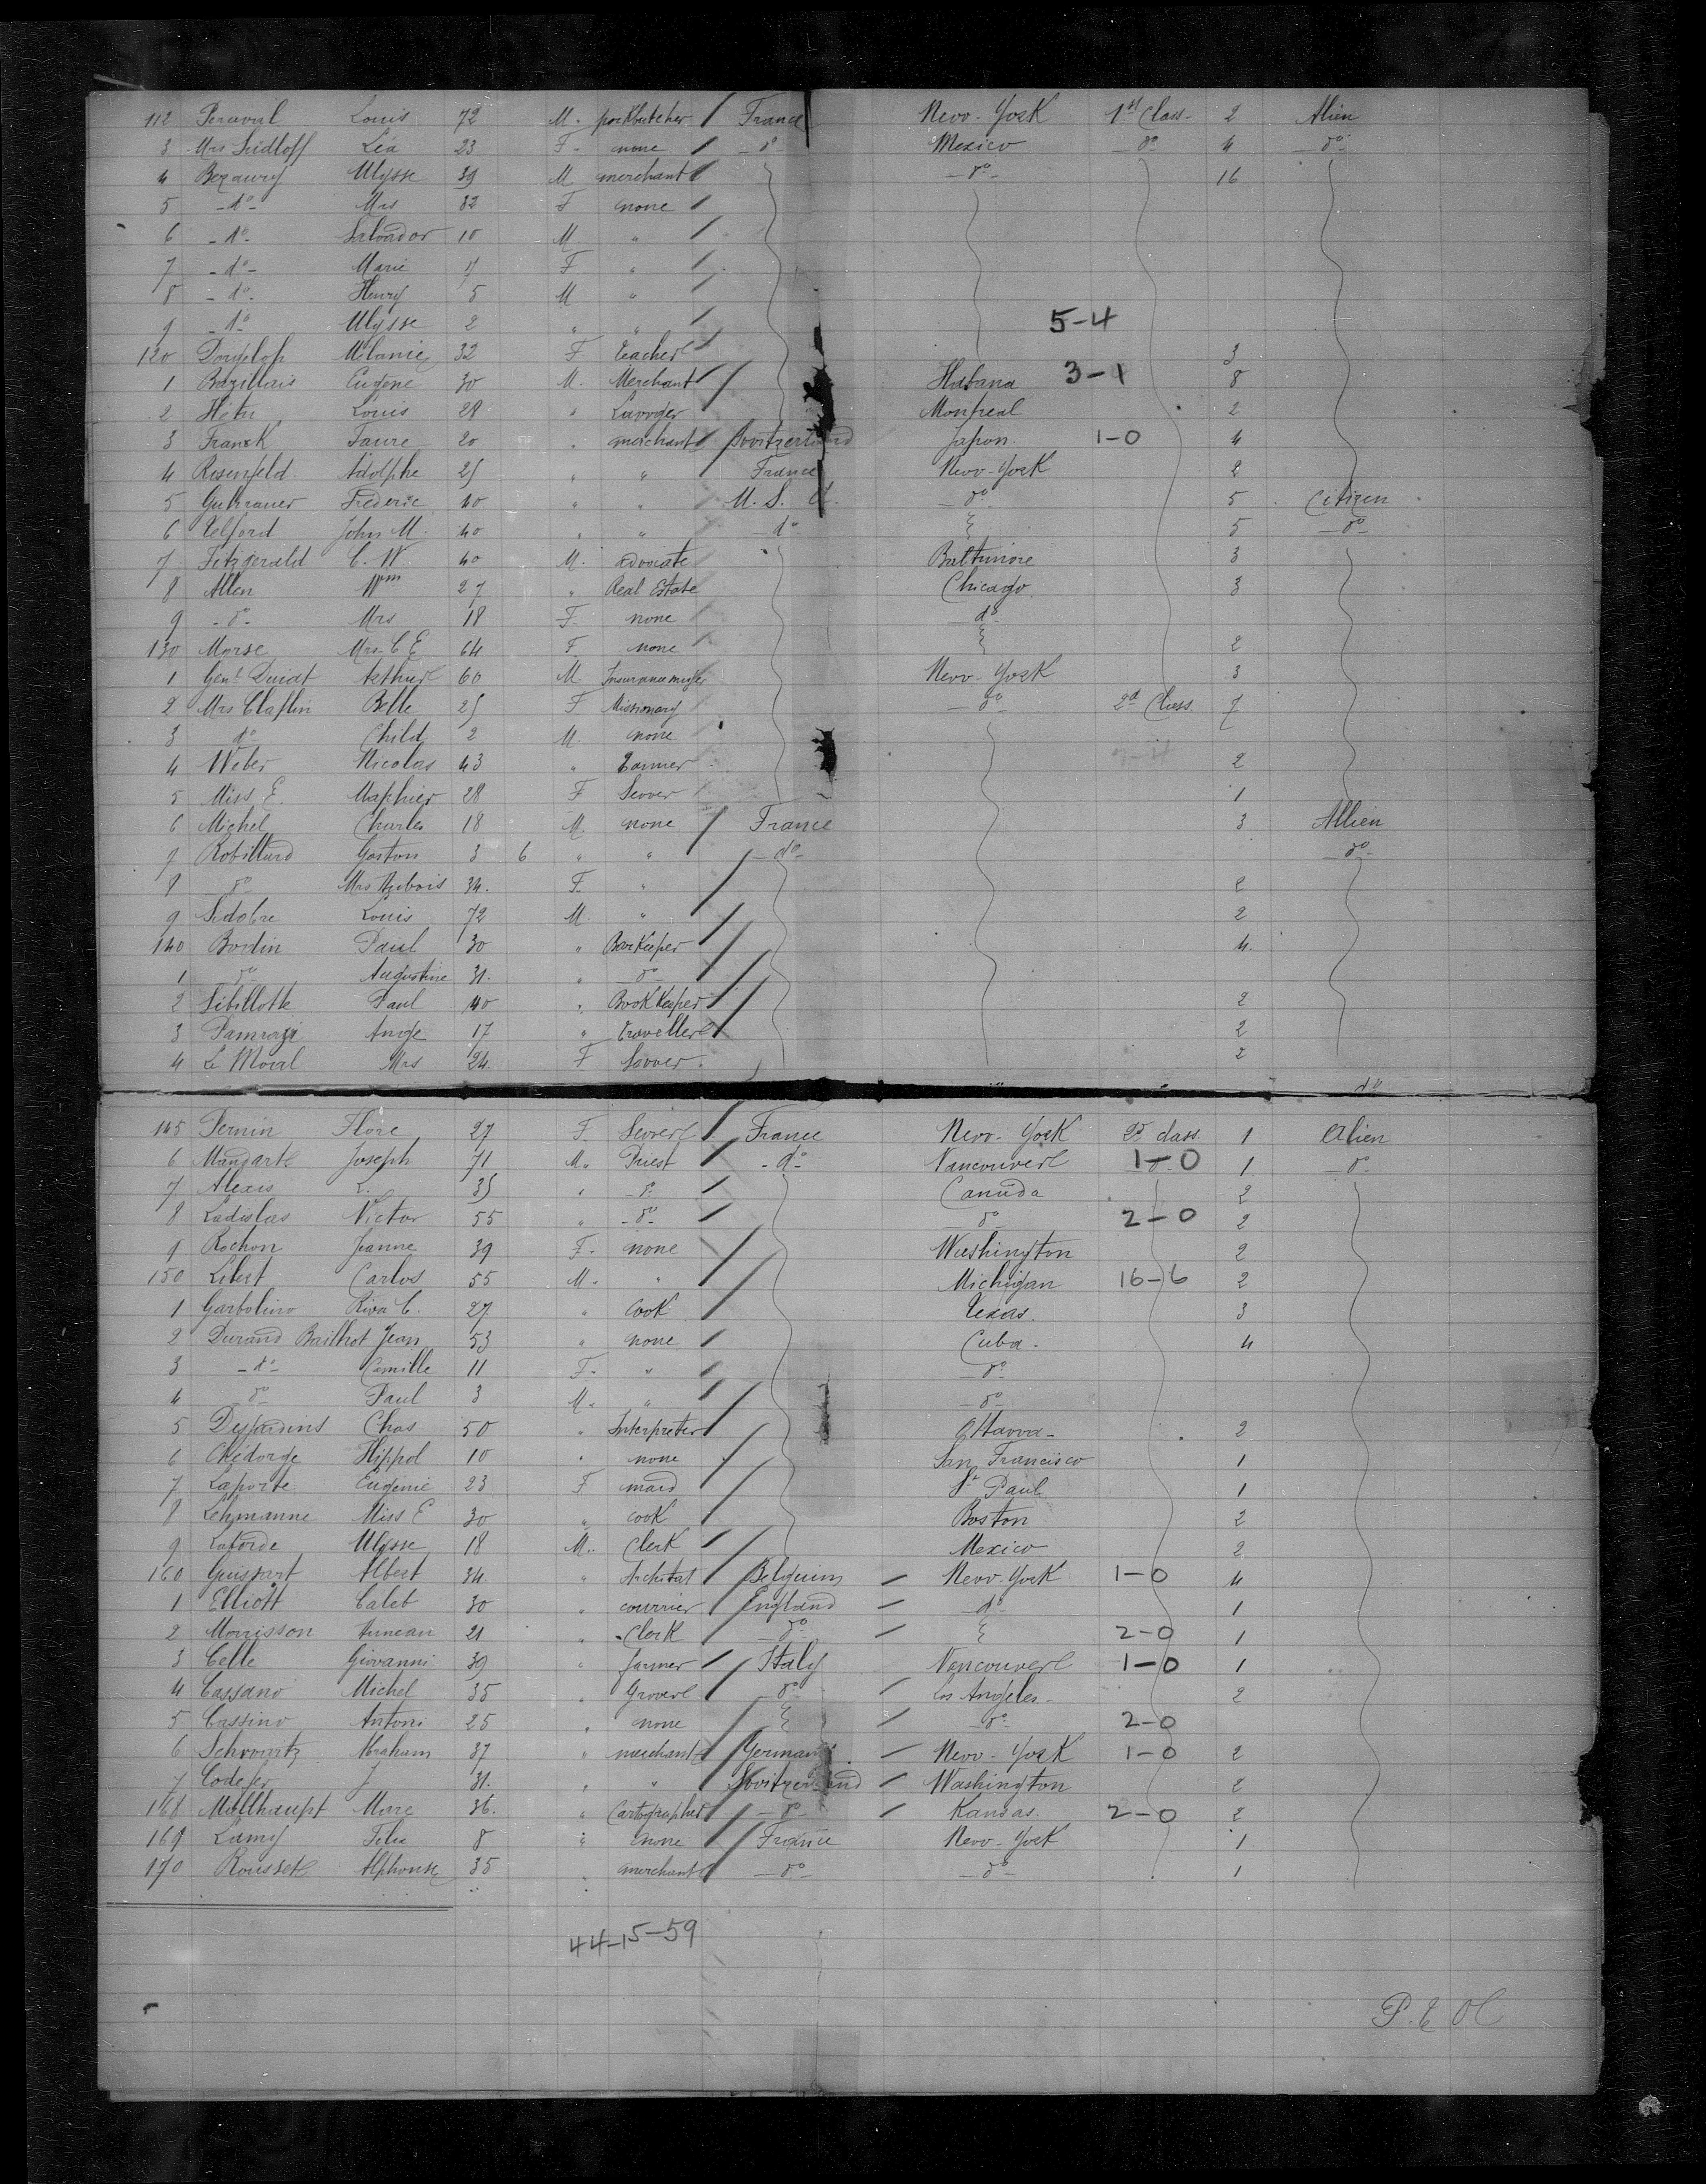 112 Perceval Louis 72 M. porkbutcher France New-York 1st Class 2 Alien
3 Mrs Seidloff Léa 23 F- none do Mexico do 4 do
4 Bezaury Ulysse 39 M merchant do 16
5 -do- Mrs 32 F none
6 -do- Salvador 10 M "
7 -do- Marie 7 F "
8 -do- Henry 5 M "
9 -do- Ulysse 2 " "
5-4
120 Mélanie 32 F teacher 3
1 Bazillais Eugène 30 M. Merchant Habana 3-1 8
2 Louis 29 " Montreal 2
3 Franck Faure 20 " merchant Switzerland Japon. 1-0 4
4 Rosenfeld Adolphe 25 " " France New-York 2
5 Guhrauer Frederic 40 " " U. S. do 5 Citizen
6 Telford John M. 40 " " do 5 do
7 Fitzgerald C. W. 40 M. advocate Baltimore 3
8 Allen Wm 27 " Real Estate Chicago 3
9 -do- Mrs 18 F- none do
130 Morse Mrs C E 64 F none 2
1 Genl Arthur 60 M New-York 3
2 Mrs Claflin Belle 25 F Missionary do 2d Class. 7
3 do Child 2 M. none
4 Weber Nicolas 43 " 2
5 Miss E. 28 F Sewer 1
6 Michel Charles 18 M. none France 3 Allien
7 Robillard Gaston 3 6 " " do do
8 do Mrs Dubois 34. F- " 2
9 Sidobre Louis 72 M. " 2
140 Bodin Paul 30 " BarKeeper 4.
1 do Augustine 31. " do
2 Paul 40 " BookKeeper 2
3 Ange 17 " traveller 2
4 Le Moal Mrs 24. F Sewer 2
do
145 Pernin Flore 27 F. Sewer France New-York 2d class 1 Alien
6 Joseph 71 M. Priest -do- Vancouver 1-0 1 do
7 Alexis L. 35 " do Canada 2
8 Ladislas Victor 55 " -do- do 2-0 2
9 Rochon Jeanne 39 F- none Washington 2
150 Libert Carlos 55 M- " Michigan 16-6 2
1 Garbolino Riva C. 27 " Cook Texas. 3
2 Durand Jean 53 " none Cuba. 4
3 -do- Camille 11 F- " do
4 do Paul 3 M- " do
5 Desjardins Chas 50 " Interpreter Ottawa- 2
6 Hippol 10 " none San Francisco 1
7 Laporte Eugenie 23 F maid St Paul 1
8 Lehmanne Miss E 30 " cook Boston 2
9 Ulysse 18 M.. Clerk Mexico 2
160 Albert 34 " Belguim New-York 1-0 4
1 Elliott Caleb 30 " courrier England do 1
2 Morrisson 21 " Clerk do 2-0 1
3 Celle Giovanni 39 " farmer Italy Vancouver 1-0 1
4 Cassano Michel 35 " do Los Angeles- 2
5 Cassino Antoni 25 " none do 2-0
6 Schwartz Abraham 37 " merchant Germany New-York 1-0 2
7 J 31. " " Switzerland Washington 2
168 Mullhaupt Marc 36. " Cartographer do Kansas. 2-0 2
169 Lamy Felix 8 " none France New-York 1
170 Rousset Alphonse 35 " merchant do do 1
44-15-59